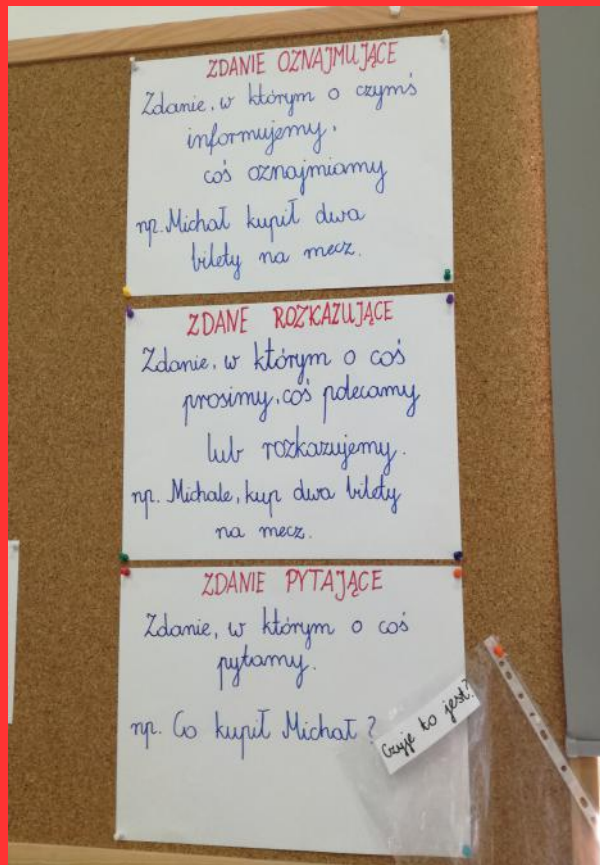 ZDANIE OZNAJMUJĄCE
Zdanie, w którym o czymś
informujemy,
coś oznajmiamy
np. Michał kupił dwa
bilety na mecz.
ZDANE ROZKAZUJĄCE
Zdanie, w którym o coś
prosimy, coś polecamy
lub rozkazujemy.
np. Michale, kup dwa bilety
na mecz.
ZDANIE PYTAJĄCE
Zdanie, w którym o coś
pytamy.
np. Co kupił Michał?
Czyje to jest?